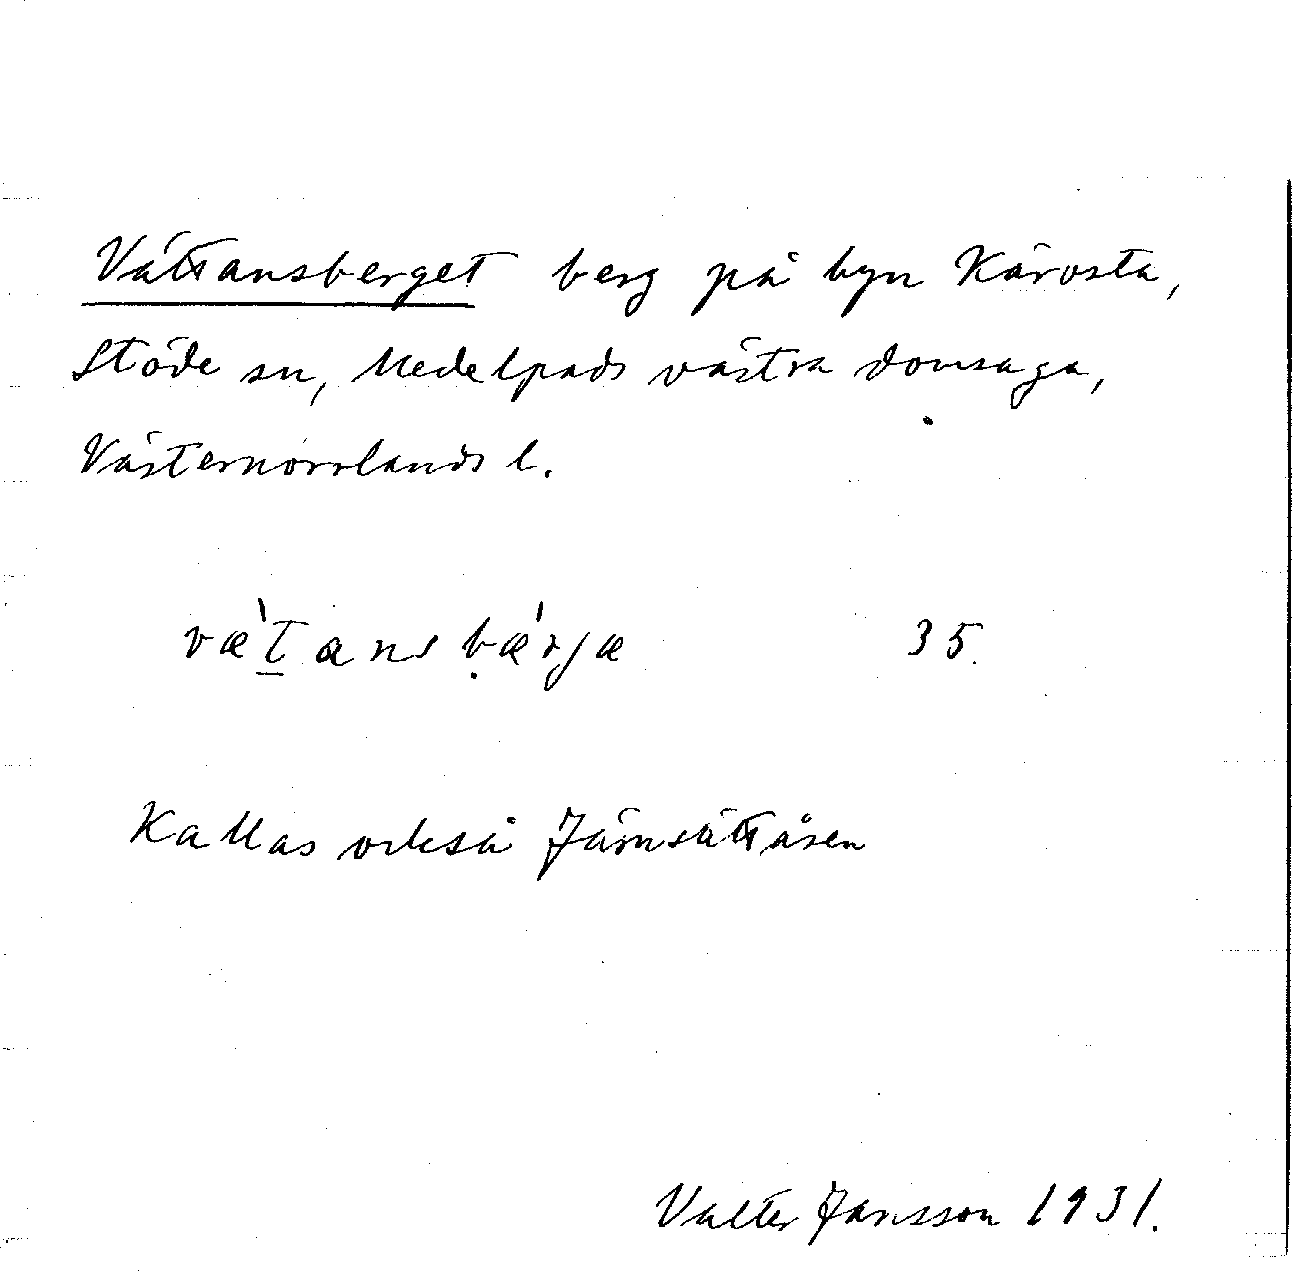 Vättansberget berg på byn Kärosta,
Stöde sn, Medelpads västra domsaga,
Västernorrlands l.
væ̀t̲ansbæ̀rjæ 35.
Kallas också Järnsättåsen
Valter Jansson 1931.